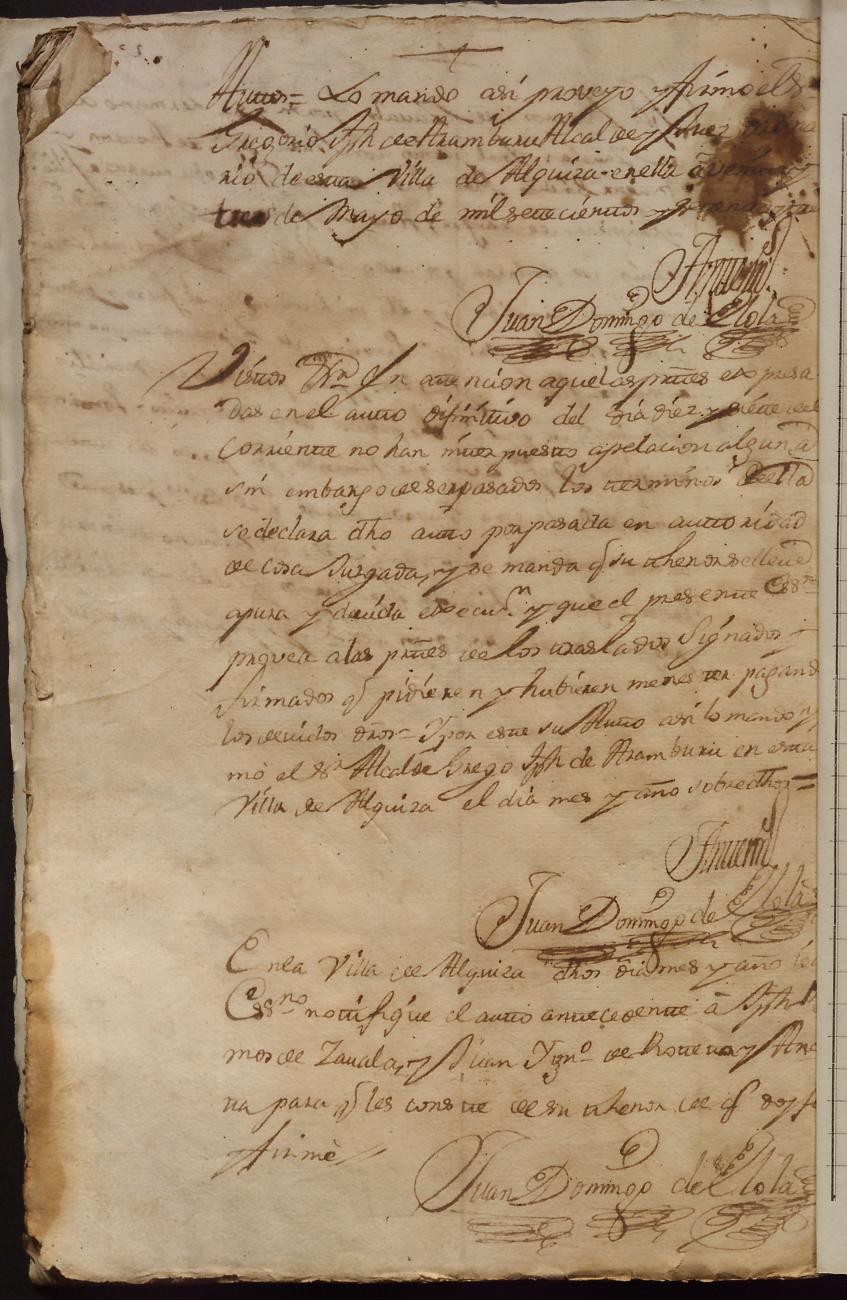 Autos= Lo mando asi proveyo y firmo el Sr
Gregorio Jph de Aramburu Alcalde y Juez
rio de esta Villa de Alquiza en ella a veinte y
tres de Mayo de mil setecientos y
Antemi
Juan Domingo de Elola
Vistos Atn En atencion aquelas prtes expresa
das en el auto difinitivo del dia diez y siete del
Corriente no han interpuesto apelacion alguna
sin embargo de ser pasados los terminos de ella
se declara dho auto por pasada en autoridad
de cosa Juzgada, y se manda q su thenor se lleue
apura y deuida execun y que el presente Essno
provea a las prtes de los traslados Signados y
firmados q pidieren y hubieren menester pagando
los deuidos dros= Y por este su Auto asi lo mando y
mo el Sr Alcalde Grego Jph de Aramburu en esta
Villa de Alquiza el dia mes y año sobredhos=
Antemi
Juan Domingo de Elola
En la Villa de Alquiza dhos dia mes y año
Essno notifique el auto antecedente a Jph
mos de Zauala, y Juan Ygno de Roteta y
ta para q les conste de su thenor de q doy fe
y firmè
Juan Domingo de Elola